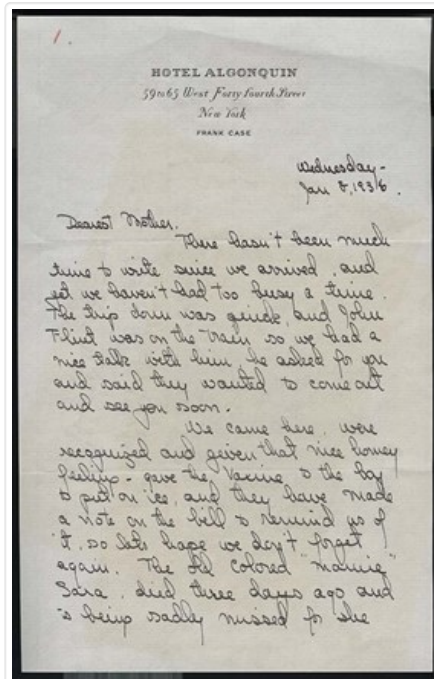 1.
HOTEL ALGONQUIN
59 to 65 West Forty fourth Street
New York
FRANK CASE
Wednesday -
Jan 8, 1936.
Dearest Mother.
There hasn't been much
time to write since we arrived, and
yet we haven't had too busy a time.
The trip down was quick, and John
Flint was on the train so we had a
nice talk with him, he asked for you
and said they wanted to come out
and see you soon.
We came here, were
recognized and given that nice homey
feeling - gave the vaccine to the boy
to put on ice, and they have made
a note on the bill to remind us of
it, so lets hope we don't forget
again. The old colored
Sara, died three days ago and
is being sadly missed for she